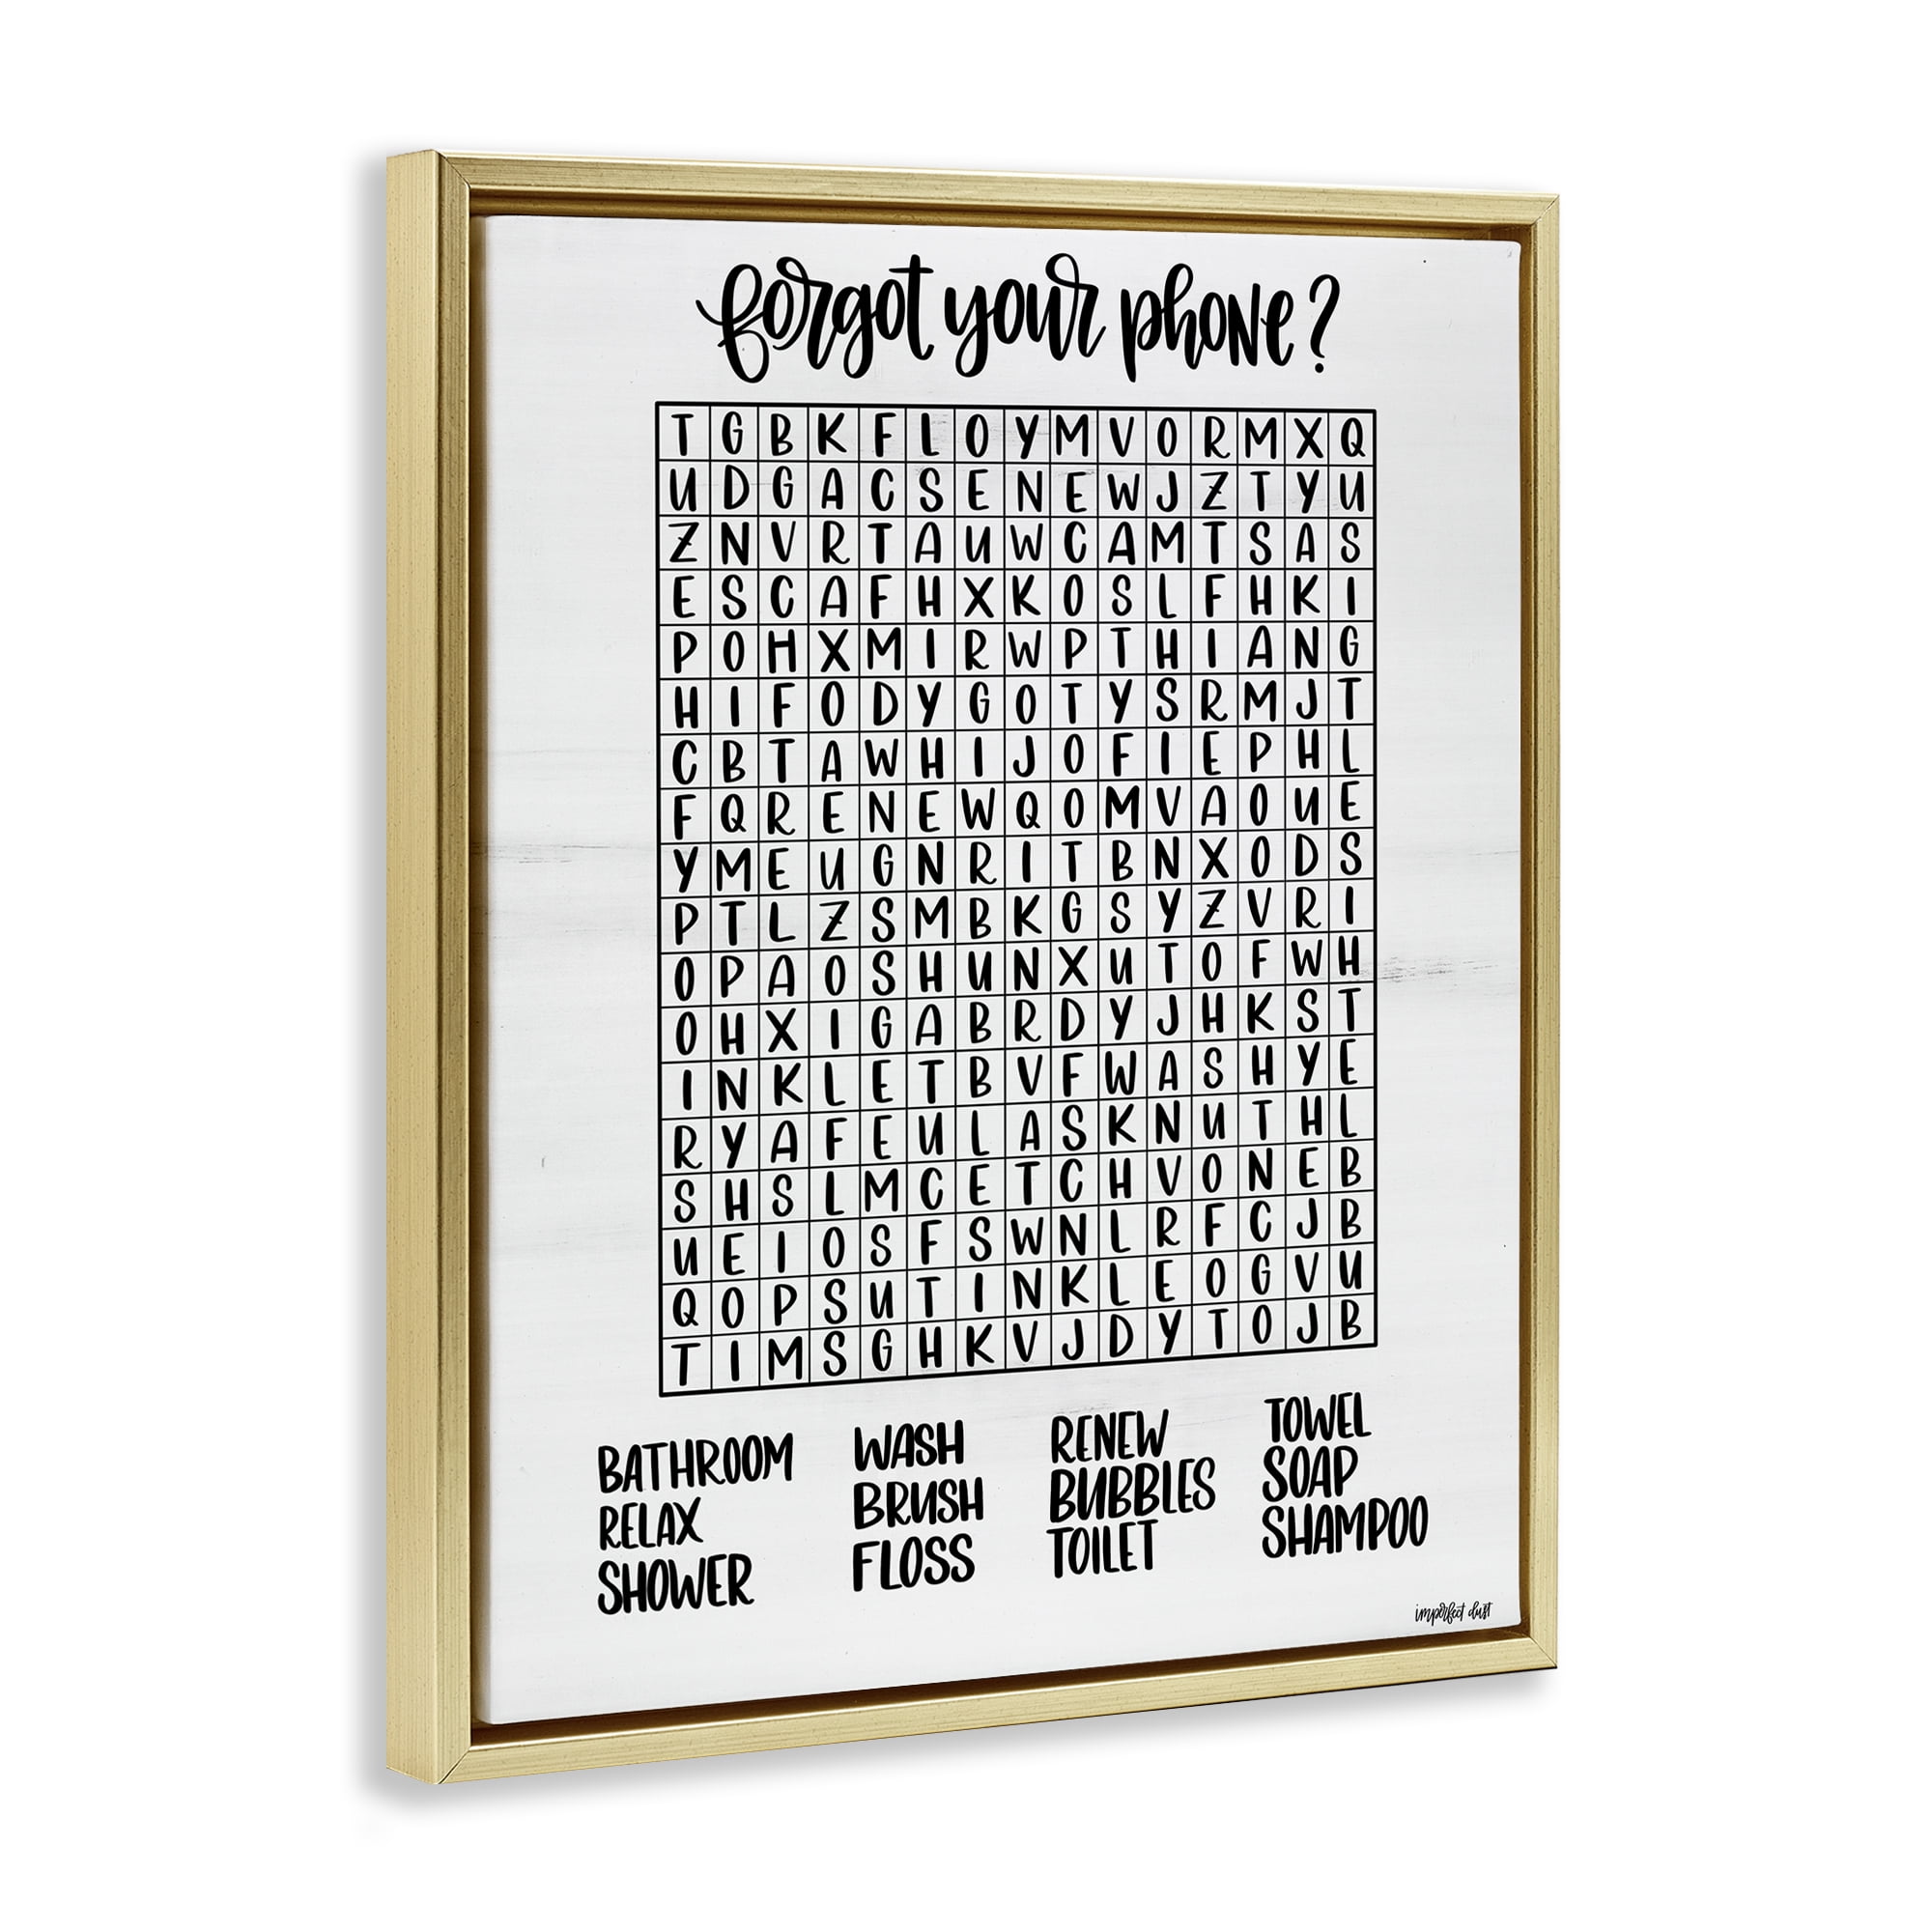 forgot your phone?
T G B K F L O Y M V O R M X Q
U D G A C S E N E W J Z T Y U
Z N V R T A U W C A M T S A S
E S C A F H X K O S L F H K I
P O H X M I R W P T H I A N G
H I F O D Y G O T Y S R M J T
C B T A W H I J O F I E P H L
F Q R E N E W Q O M V A O U E
Y M E U G N R I T B N X O D S
P T L Z S M B K G S Y Z V R I
O P A O S H U N X U T O F W H
O H X I G A B R D Y J H K S T
I N K L E T B V F W A S H Y E
R Y A F E U L A S K N U T H L
S H S L M C E T C H V O N E B
U E I O S F S W N L R F C J B
Q O P S U T I N K L E O G V U
T I M S G H K V J D Y T O J B
BATHROOM WASH RENEW TOWEL
RELAX BRUSH BUBBLES SOAP
SHOWER FLOSS TOILET SHAMPOO
imperfect dust